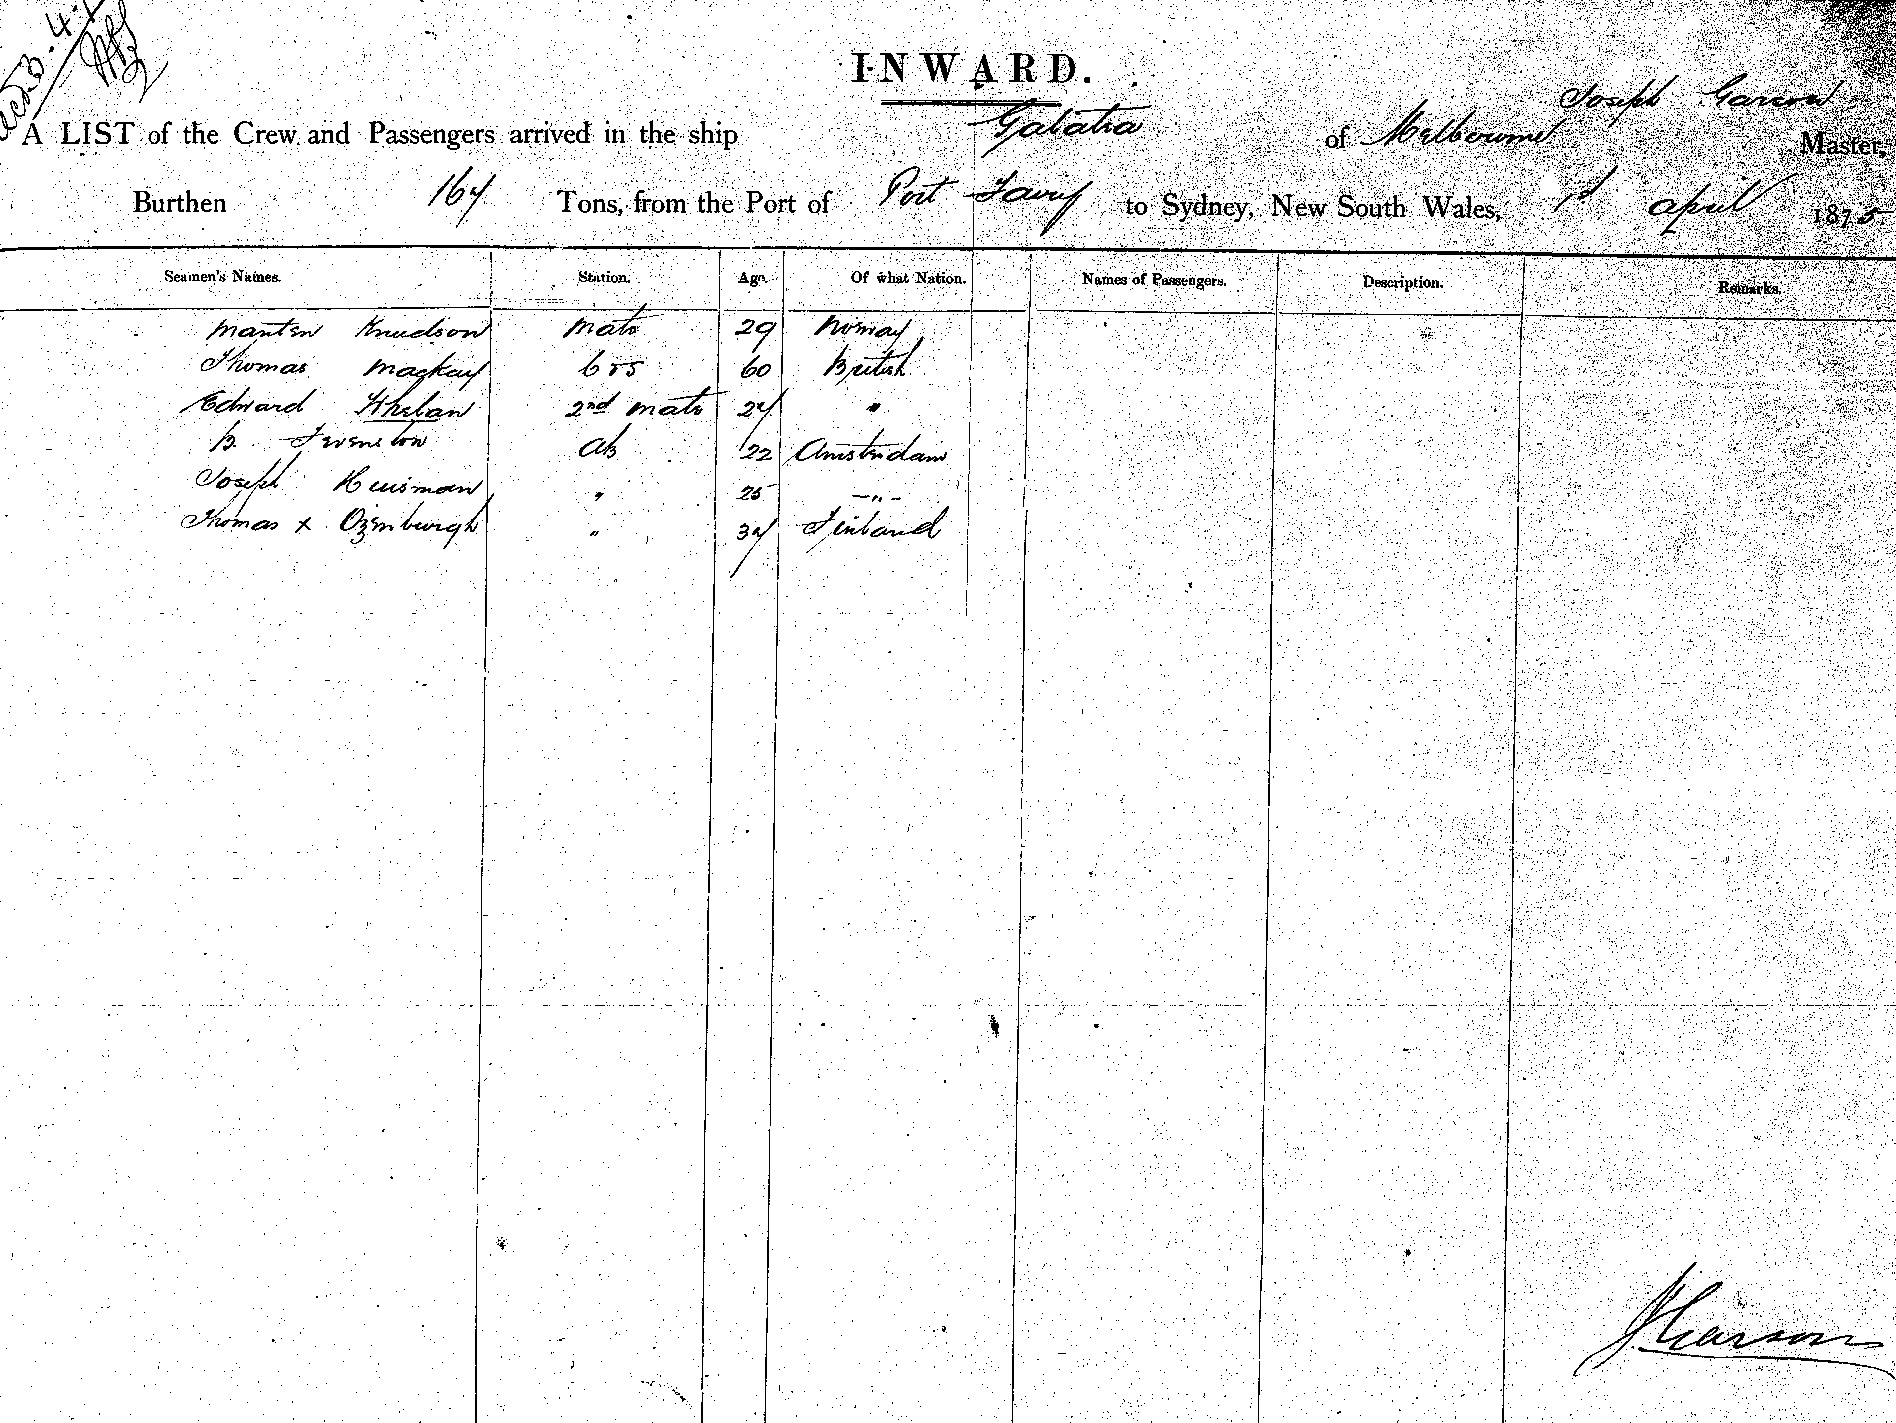 INWARD.
Joseph Garson
A LIST of the Crew and Passengers arrived in the ship Galatia of Melbourne Master,
Burthen 167 Tons, from the Port of Port Fairy to Sydney, New South Wales, 1st April 1875
Seamen's Names. Station. Age. Of what Nation. Names of Passengers. Description. Remarks.
Knudson Mate 29 Norway
Thomas Mackay 60 British
Edward Whelan 2nd Mate 27 "
22 Amsterdam
Joseph Huisman " 25 "
Thomas x Ozenburgh " 37 Finland
J Garson